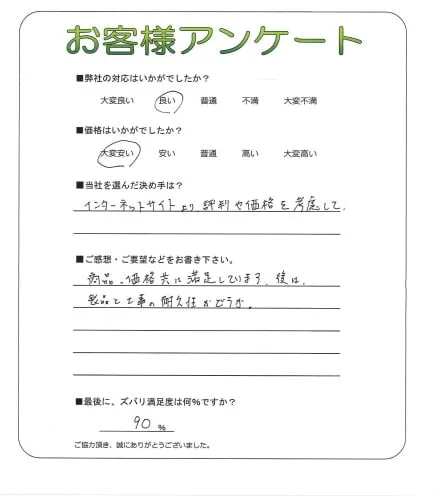 お客様アンケート
■弊社の対応はいかがでしたか？
大変良い 良い 普通 不満 大変不満
■価格はいかがでしたか？
大変安い 安い 普通 高い 大変高い
■当社を選んだ決め手は？
インターネットサイトより評判や価格を考慮して.
■ご感想・ご要望などをお書き下さい。
商品、価格共に満足しています. 後は.
製品と工事の耐久性がどうか.
■最後に、ズバリ満足度は何%ですか？
90 %
ご協力頂き、誠にありがとうございました。